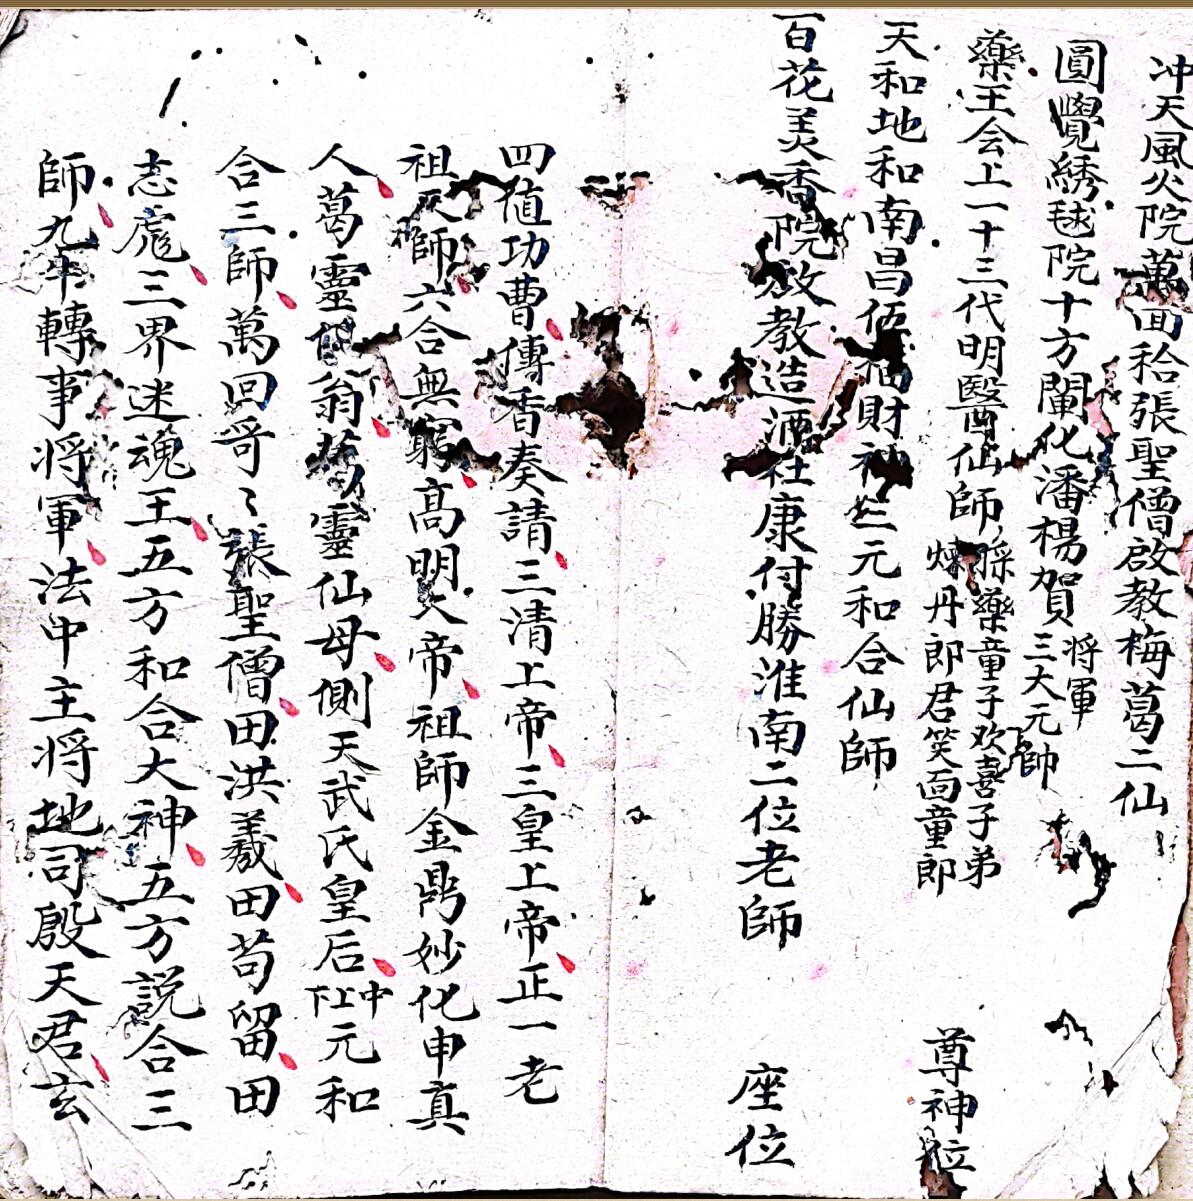 冲天風火院萬回哥張聖僧啟教梅葛二仙
圓覺綉毬院十方闡化潘楊賀三大元帥將軍
藥王会上一十三代明醫仙師採藥童子欢喜子弟
煉丹郎君笑面童郎
天和地和南昌伍福財神三元和合仙師
尊神位
百花美香院放教造酒杜康付勝淮南二位老師
座位
四值功曹傳香奏請三清上帝三皇上帝正一老
祖天師六合無窮高明大帝祖師金鼎妙化申真
人葛靈仙翁葛靈仙母側天武氏皇后上中下元和
合三師萬回哥〻張聖僧田洪義田苟留田
志彪三界迷魂王五方和合大神五方説合三
師九牛轉事将軍法中主将地司殷天君玄